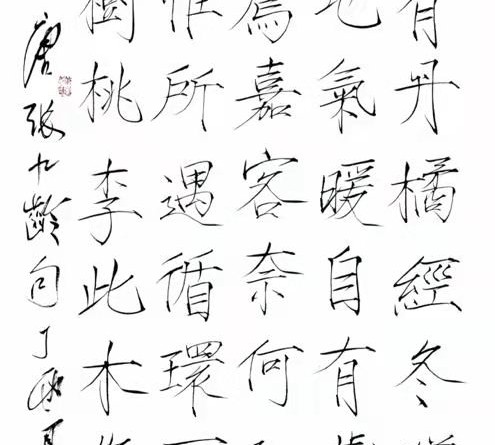 有丹橘經冬
地氣暖自有
薦嘉客奈何
惟所遇循環
樹桃李此木
唐張九齡句丁酉夏